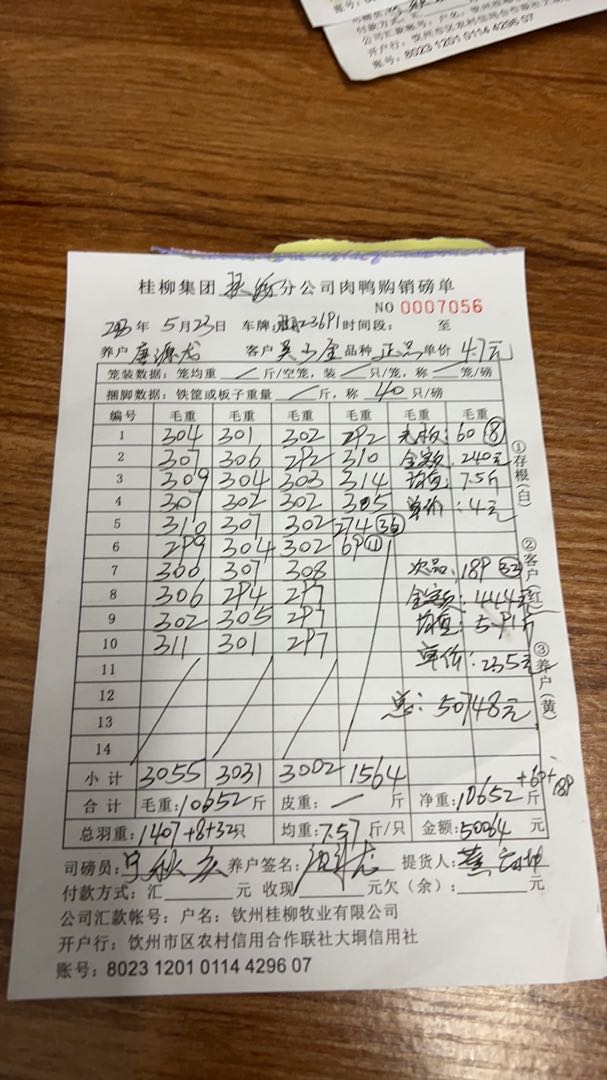 公司汇款帐号：户名：钦州桂柳牧业有限公司
开户行：钦州市区农村信用合作联社大垌信用社
账号：8023 1201 0114 4296 07
桂柳集团 分公司肉鸭购销磅单
NO 0007056
年 5月23日 车牌： 3691 时间段： 至
养户 唐源龙 客户 吴 金 品种 正品 单价 4.7元
笼装数据：笼均重 / 斤/空笼，装 / 只/笼，称 / 笼/磅
捆脚数据：铁筐或板子重量 / 斤，称 40 只/磅
编号 毛重 毛重 毛重 毛重 毛重 毛重
1 304 301 302 292 60 ⑧
2 307 306 292 310 金额：240元
3 309 304 303 314 均重：7.5斤
4 307 302 302 305 单价：4元
5 310 307 302 274 36
6 299 304 302 69 11
7 300 307 308 次品：189 32
8 306 294 297 金额：444元
9 302 305 297 均重：5.91斤
10 311 301 297 单价：2.35元
11
12 总：50748元
13
14
小计 3055 3031 3002 1564
合计 毛重：10652斤 皮重：/ 斤 净重：10652斤 +60+189
总羽重：1407+8+32只 均重：7.57斤/只 金额：50064元
司磅员： 养户签名： 提货人：
付款方式：汇 元 收现 元欠（余）： 元
公司汇款帐号：户名：钦州桂柳牧业有限公司
开户行：钦州市区农村信用合作联社大垌信用社
账号：8023 1201 0114 4296 07
①存根（白）
②客户（红）
③养户（黄）